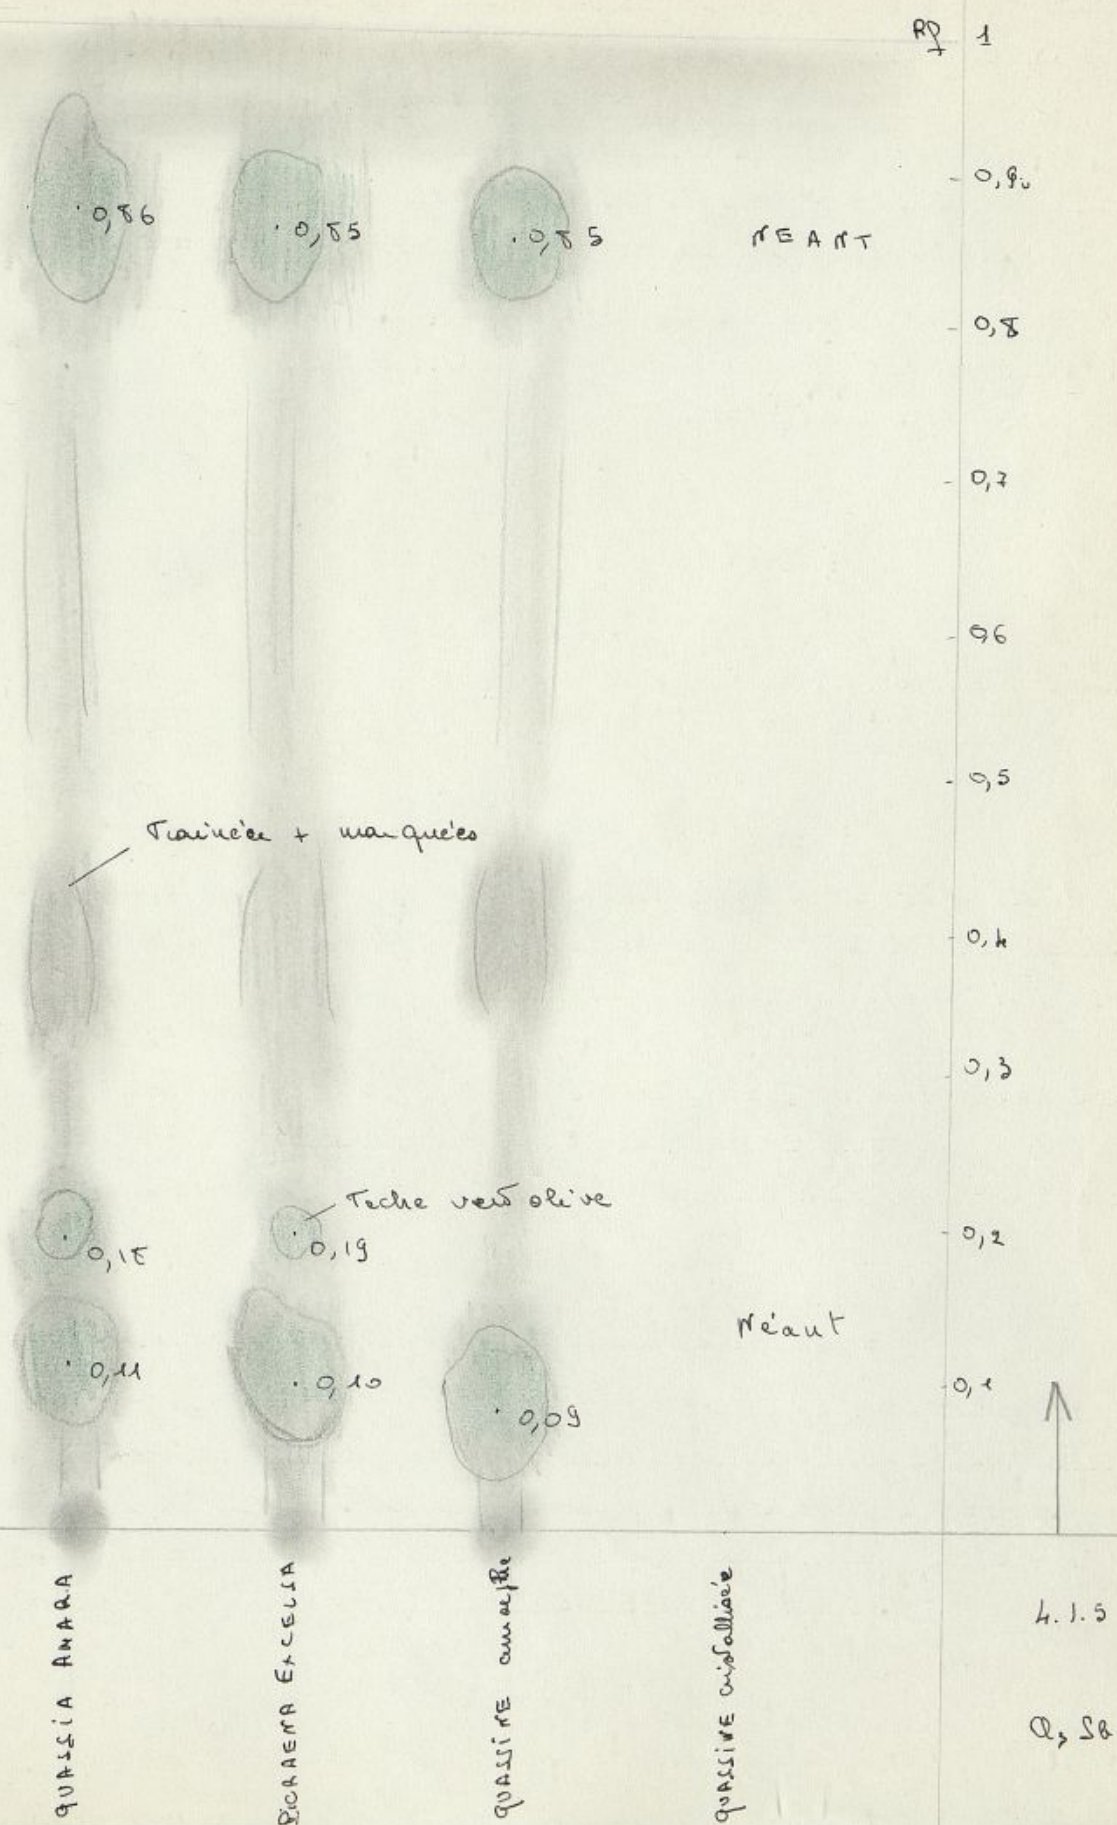 Rf 1
0,86
0,85
0,85
NEANT
0,9
0,8
0,7
0,6
0,5
Trainées + marquées
0,4
0,3
Tache vert olive
0,18
0,19
0,2
Néant
0,11
0,10
0,09
0,1
QUASSIA AMARA
PICRAENA EXCELSA
QUASSINE amorphe
QUASSINE cristallisée
4.1.5
Q, SB